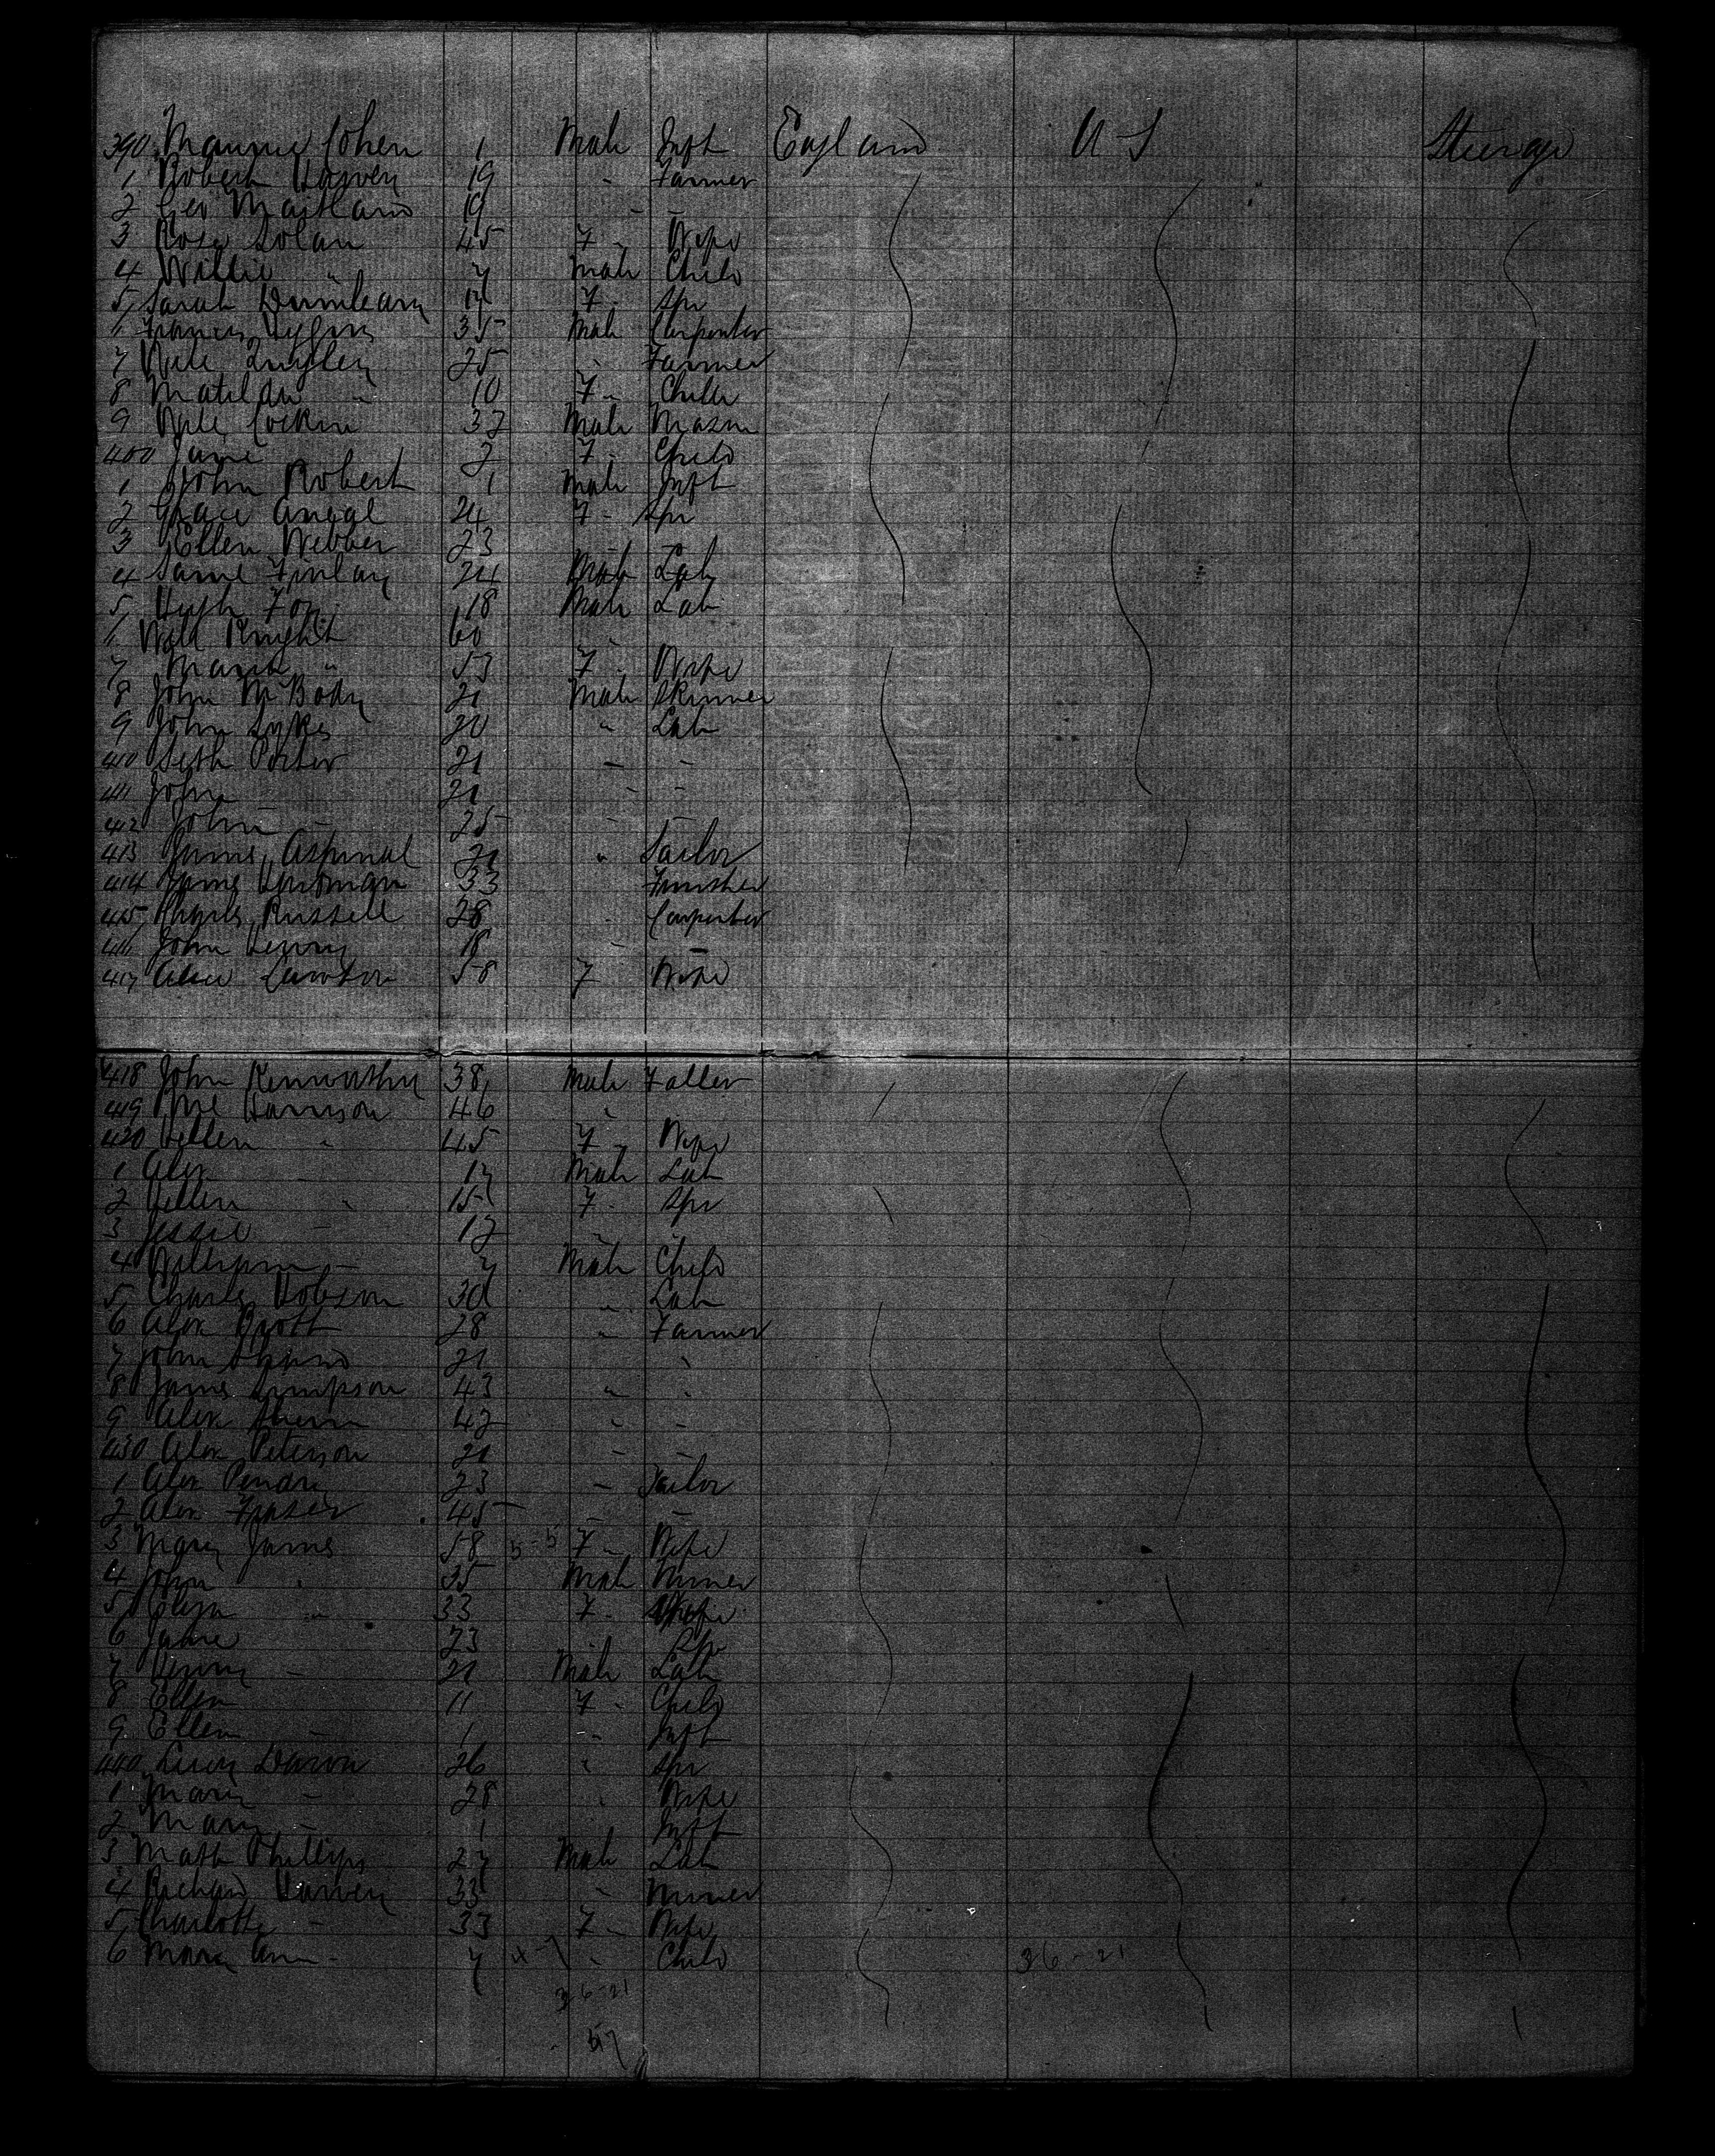 390 Mannie Cohen 1 Male Inft England U S Steerage
1 Robert Harvey 19 " Farmer
2 Geo Maitland 19 " "
3 Rose Dolan 45 F " Wife
4 Willie " 7 Male Child
5 Sarah 17 F " Spr
6 Francis 35 Male Carpenter
7 25 " Farmer
8 Matilda " 10 F " Child
9 32 Male Mason
400 Jane 2 F " Child
1 John Robert 1 Male Inft
2 Grace 24 F - Spr
3 Ellen Webber 23
4 Saml Finlay 24 Male Lab
5 Hugh Fox 18 Male Lab
6 Will Knight 60 "
7 " 53 F " Wife
8 John 21 Male Skinner
9 John Sykes 20 " Lab
410 Seth Porter 21 - -
411 John - 21 - -
412 John - 25 - -
413 James Aspinal 21 " Tailor
414 James 33 Finisher
415 Charles Russell 28 " Carpenter
416 John Henry 18 - -
417 Alice 58 F Wife
418 John Kenworthy 38 Male
419 Harrison 46 "
420 Hellen " 45 F - Wife
1 Alex 17 Male Lab
2 Hellen " 15 F - Spr
3 Jessie - 12 -
4 William - 7 Male Child
5 Charles Hobson 30 " Lab
6 Alex 28 " Farmer
7 John 21 "
8 James Simpson 43 " "
9 Alex 42 " -
430 Alex Peterson 21 - -
1 Alex 23 - Tailor
2 Alex Fraser 45 - -
3 Mary James 58 5-5 F - Wife
4 John " 35 Male Miner
5 Eliza " 33 F - Wife
6 Jane 23 Spr
7 Henry - 21 Male Lab
8 Ellen 11 F - Child
9 Ellen - 1 " Inft
440 26 " Spr
1 Mary - 28 " Wife
2 Mary - 1 Inft
3 Math Phillips 27 Male Lab
4 Richard Harvey 33 " Miner
5 Charlotte - 33 F - Wife
6 Mary Ann - 7 4-7 " Child 36-21
36-21
57